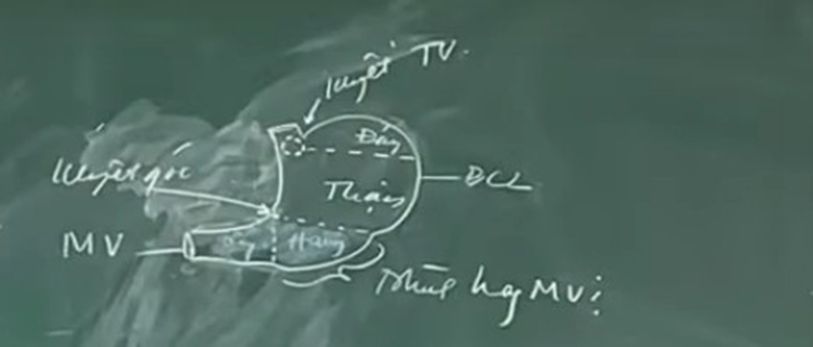 khuyết TV.
Đáy
khuyết góc
Thân
BCL
MV
Ống Hang
Phần hay MV